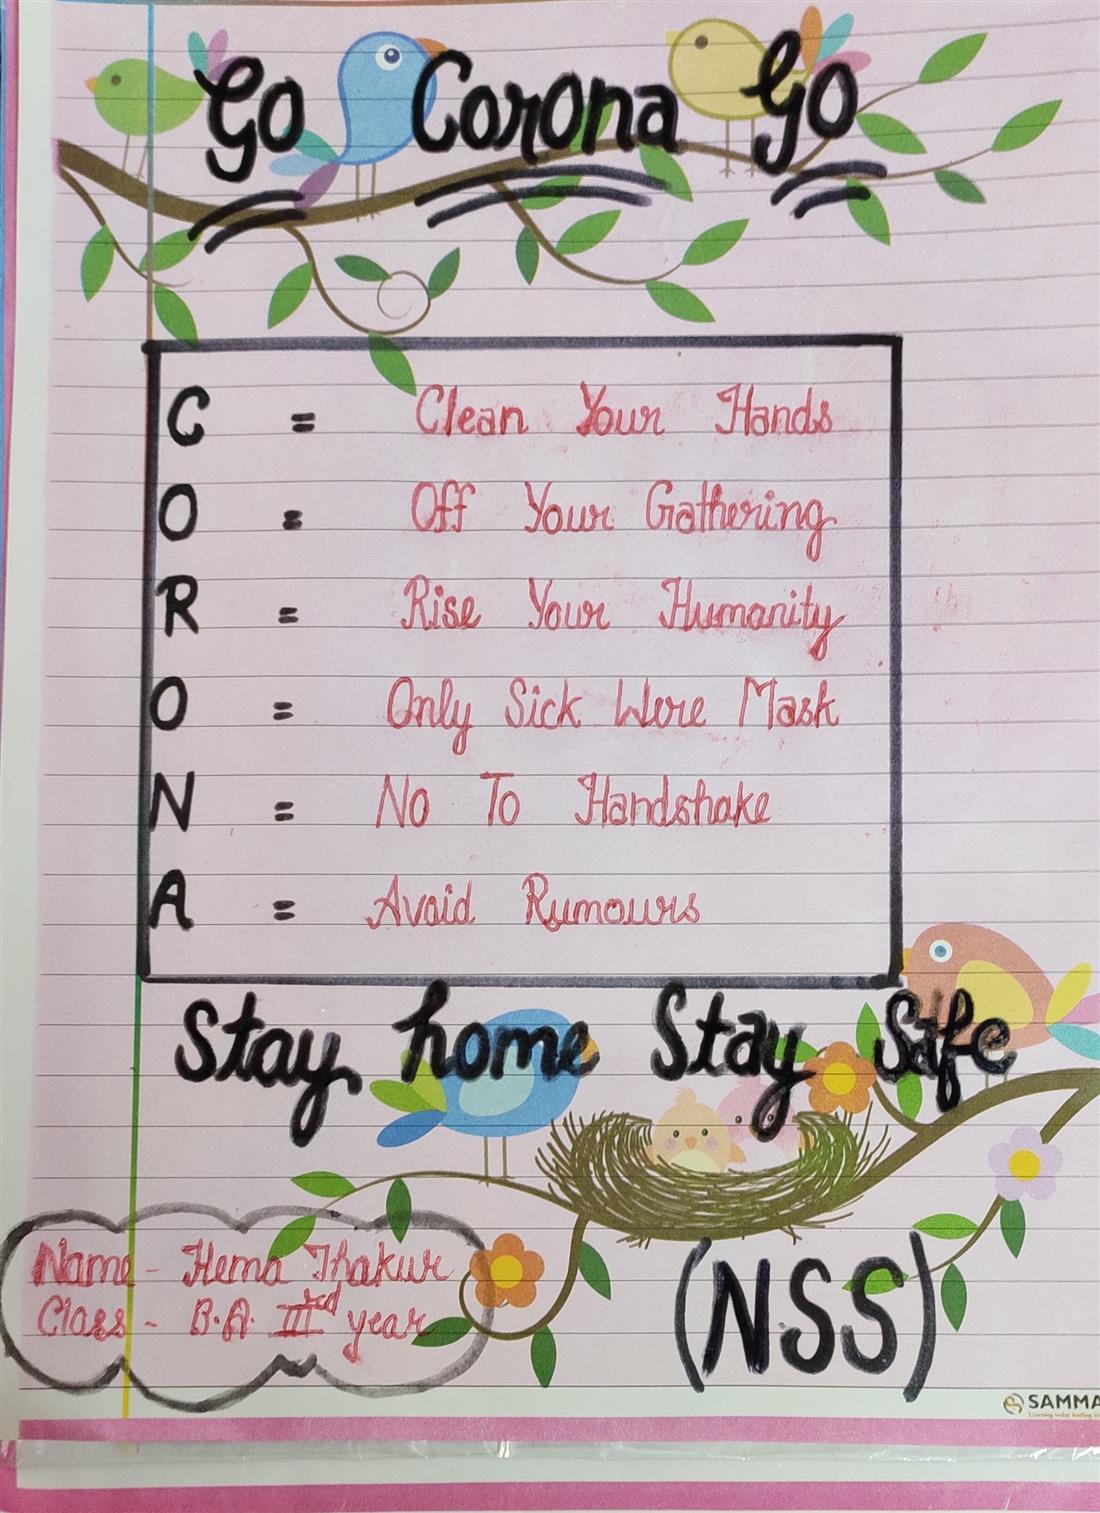 Go Corona Go
C = Clean Your Hands
O = Off Your Gathering
R = Rise Your Humanity
O = Only Sick Were Mask
N = No To Handshake
A = Avoid Rumours
Stay home Stay Safe
Name - Hema Thakur
Class - B.A. IIIrd year
(NSS)
SAMMA